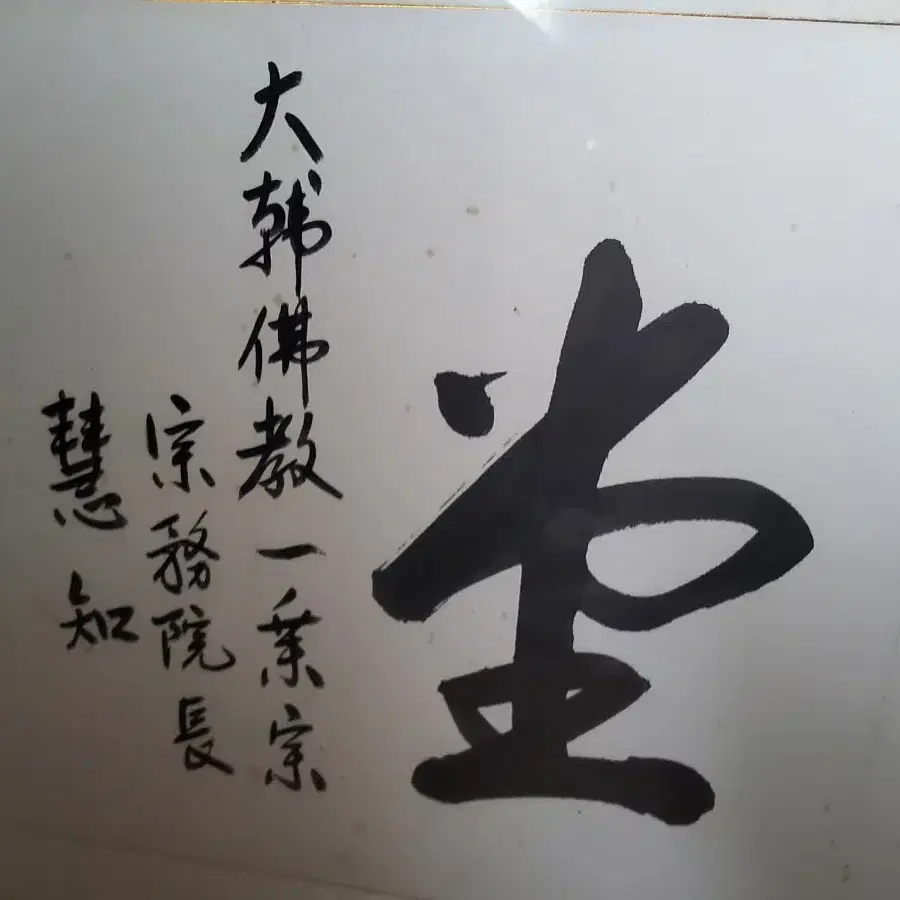 堂
大韓佛教一乘宗
宗務院長
慧知